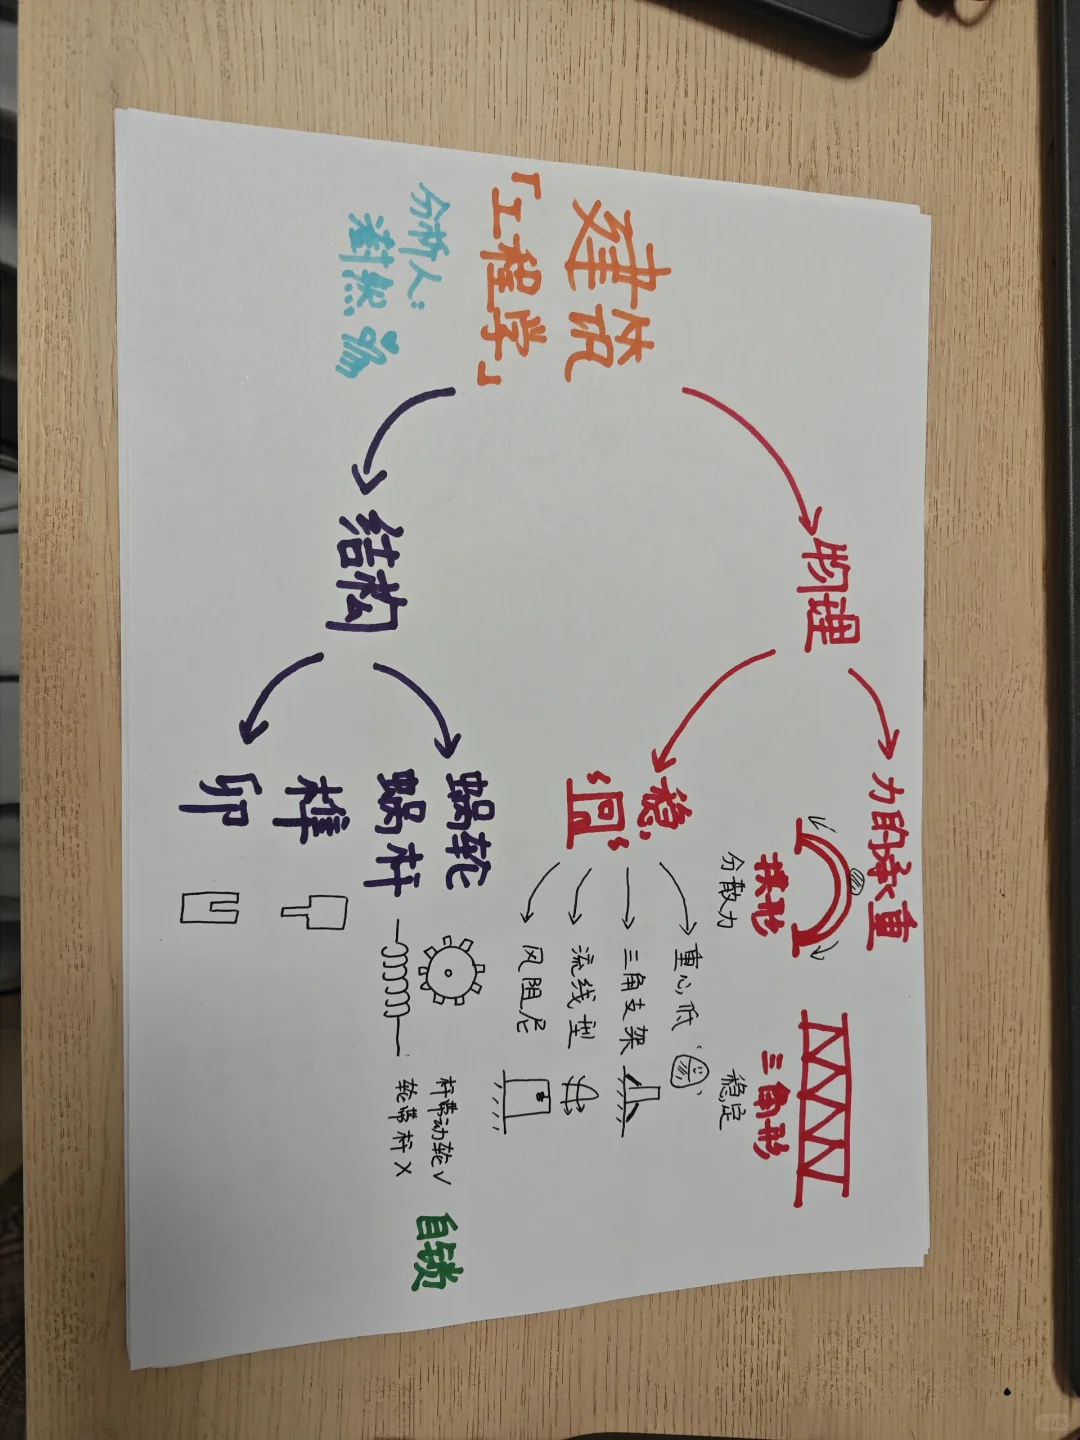 建筑
「工程学」
分析人:
物理
力的承重
拱形
分散力
三角形
稳定
稳固
重心低
三角支架
流线型
风阻尼
结构
蜗轮
蜗杆
杆带动轮√
轮带杆×
自锁
榫
卯